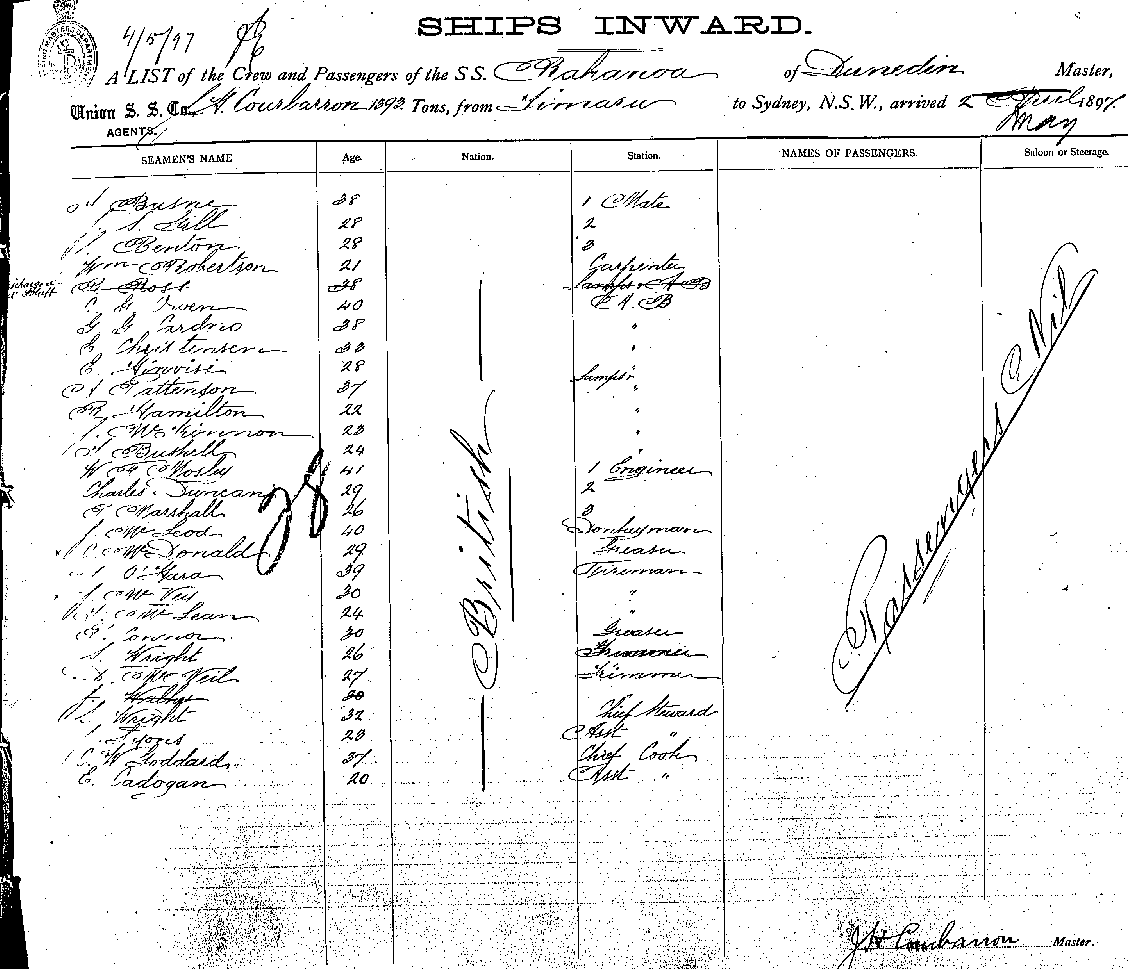 4/5/97
SHIPS INWARD.
A LIST of the Crew and Passengers of the S.S. Rakanoa of Dunedin Master,
Union S. S. Co. Courbarron 1393 Tons, from Timaru to Sydney, N.S.W., arrived 2 April 1897
AGENTS. May
SEAMEN'S NAME Age. Nation. Station. NAMES OF PASSENGERS. Saloon or Steerage.
38 1 Mate
S. Gill 28 2
Benton 28 3
Wm Robertson 21 Carpenter
Ross 38 Lamps & A B
40 A. B
G 38 "
Christensen 33 "
E. 28
Pattenson 37 Lamps "
R. Hamilton 22 "
McKinnon 23 "
Bushell 24
W Mosley 41 1 Engineer
Charles Duncan 29 2
Marshall 26 3
McLeod 40 Donkeyman
McDonald 29 Greaser
O'Hara 39 Fireman
30 "
McLean 24 "
Connor 30 Greaser
S. Wright 26
McNeil 27 Trimmer
J. 30
Wright 32 Chief Steward
Lyons 23 Asst "
C. W Goddard 37 Chief Cook
E. Cadogan 20 Asst "
28
British
Passengers Nil
J H Courbarron Master.